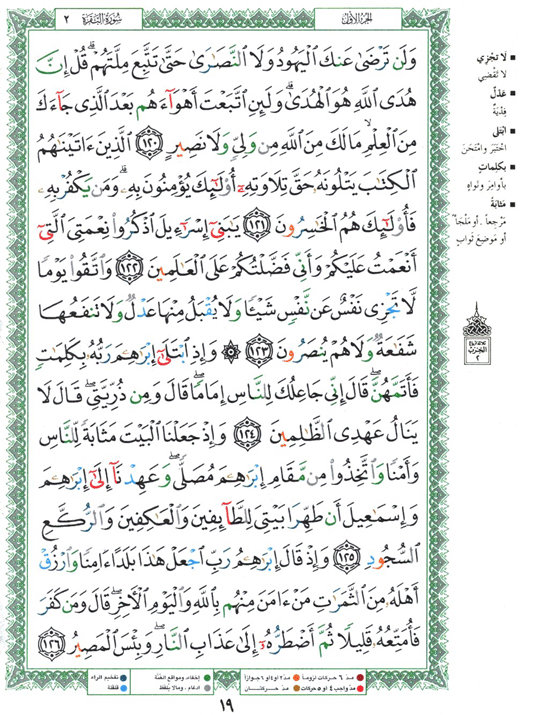 الجزء الأول
سورة البقرة ٢
وَلَن تَرْضَىٰ عَنكَ ٱلْيَهُودُ وَلَا ٱلنَّصَـٰرَىٰ حَتَّىٰ تَتَّبِعَ مِلَّتَهُمْ ۗ قُلْ إِنَّ
هُدَى ٱللَّهِ هُوَ ٱلْهُدَىٰ ۗ وَلَئِنِ ٱتَّبَعْتَ أَهْوَآءَهُم بَعْدَ ٱلَّذِى جَآءَكَ
مِنَ ٱلْعِلْمِ ۙ مَا لَكَ مِنَ ٱللَّهِ مِن وَلِىٍّ وَلَا نَصِيرٍ ١٢٠ ٱلَّذِينَ ءَاتَيْنَـٰهُمُ
ٱلْكِتَـٰبَ يَتْلُونَهُۥ حَقَّ تِلَاوَتِهِۦٓ أُو۟لَـٰٓئِكَ يُؤْمِنُونَ بِهِۦ ۗ وَمَن يَكْفُرْ بِهِۦ
فَأُو۟لَـٰٓئِكَ هُمُ ٱلْخَـٰسِرُونَ ١٢١ يَـٰبَنِىٓ إِسْرَٰٓءِيلَ ٱذْكُرُوا۟ نِعْمَتِىَ ٱلَّتِىٓ
أَنْعَمْتُ عَلَيْكُمْ وَأَنِّى فَضَّلْتُكُمْ عَلَى ٱلْعَـٰلَمِينَ ١٢٢ وَٱتَّقُوا۟ يَوْمًا
لَّا تَجْزِى نَفْسٌ عَن نَّفْسٍ شَيْـًٔا وَلَا يُقْبَلُ مِنْهَا عَدْلٌ وَلَا تَنفَعُهَا
شَفَـٰعَةٌ وَلَا هُمْ يُنصَرُونَ ١٢٣ ۞ وَإِذِ ٱبْتَلَىٰٓ إِبْرَٰهِـۧمَ رَبُّهُۥ بِكَلِمَـٰتٍ
فَأَتَمَّهُنَّ ۖ قَالَ إِنِّى جَاعِلُكَ لِلنَّاسِ إِمَامًا ۖ قَالَ وَمِن ذُرِّيَّتِى ۖ قَالَ لَا
يَنَالُ عَهْدِى ٱلظَّـٰلِمِينَ ١٢٤ وَإِذْ جَعَلْنَا ٱلْبَيْتَ مَثَابَةً لِّلنَّاسِ
وَأَمْنًا وَٱتَّخِذُوا۟ مِن مَّقَامِ إِبْرَٰهِـۧمَ مُصَلًّى ۖ وَعَهِدْنَآ إِلَىٰٓ إِبْرَٰهِـۧمَ
وَإِسْمَـٰعِيلَ أَن طَهِّرَا بَيْتِىَ لِلطَّآئِفِينَ وَٱلْعَـٰكِفِينَ وَٱلرُّكَّعِ
ٱلسُّجُودِ ١٢٥ وَإِذْ قَالَ إِبْرَٰهِـۧمُ رَبِّ ٱجْعَلْ هَـٰذَا بَلَدًا ءَامِنًا وَٱرْزُقْ
أَهْلَهُۥ مِنَ ٱلثَّمَرَٰتِ مَنْ ءَامَنَ مِنْهُم بِٱللَّهِ وَٱلْيَوْمِ ٱلْـَٔاخِرِ ۖ قَالَ وَمَن كَفَرَ
فَأُمَتِّعُهُۥ قَلِيلًا ثُمَّ أَضْطَرُّهُۥٓ إِلَىٰ عَذَابِ ٱلنَّارِ ۖ وَبِئْسَ ٱلْمَصِيرُ ١٢٦
■ لَا تَجْزِي
لا تَقْضِي
■ عَدْلٌ
فِدْيَةٌ
■ ابْتَلَى
اخْتَبَرَ وامْتَحَنَ
■ بِكَلِمَاتٍ
بأوامِرَ ونَواهٍ
■ مَثَابَةً
مَرْجِعاً، أو مَلْجَأً
أو مَوضِعَ ثَوابٍ
الحزب
٢
مدّ ٦ حركات لزوماً
مدّ ٢ أو ٤ أو ٦ جوازاً
إخفاء، ومواقع الغُنَّة
تفخيم الراء
مدّ واجب ٤ أو ٥ حركات
مدّ حركتان
ادغام، وما لا يلفظ
قلقلة
١٩